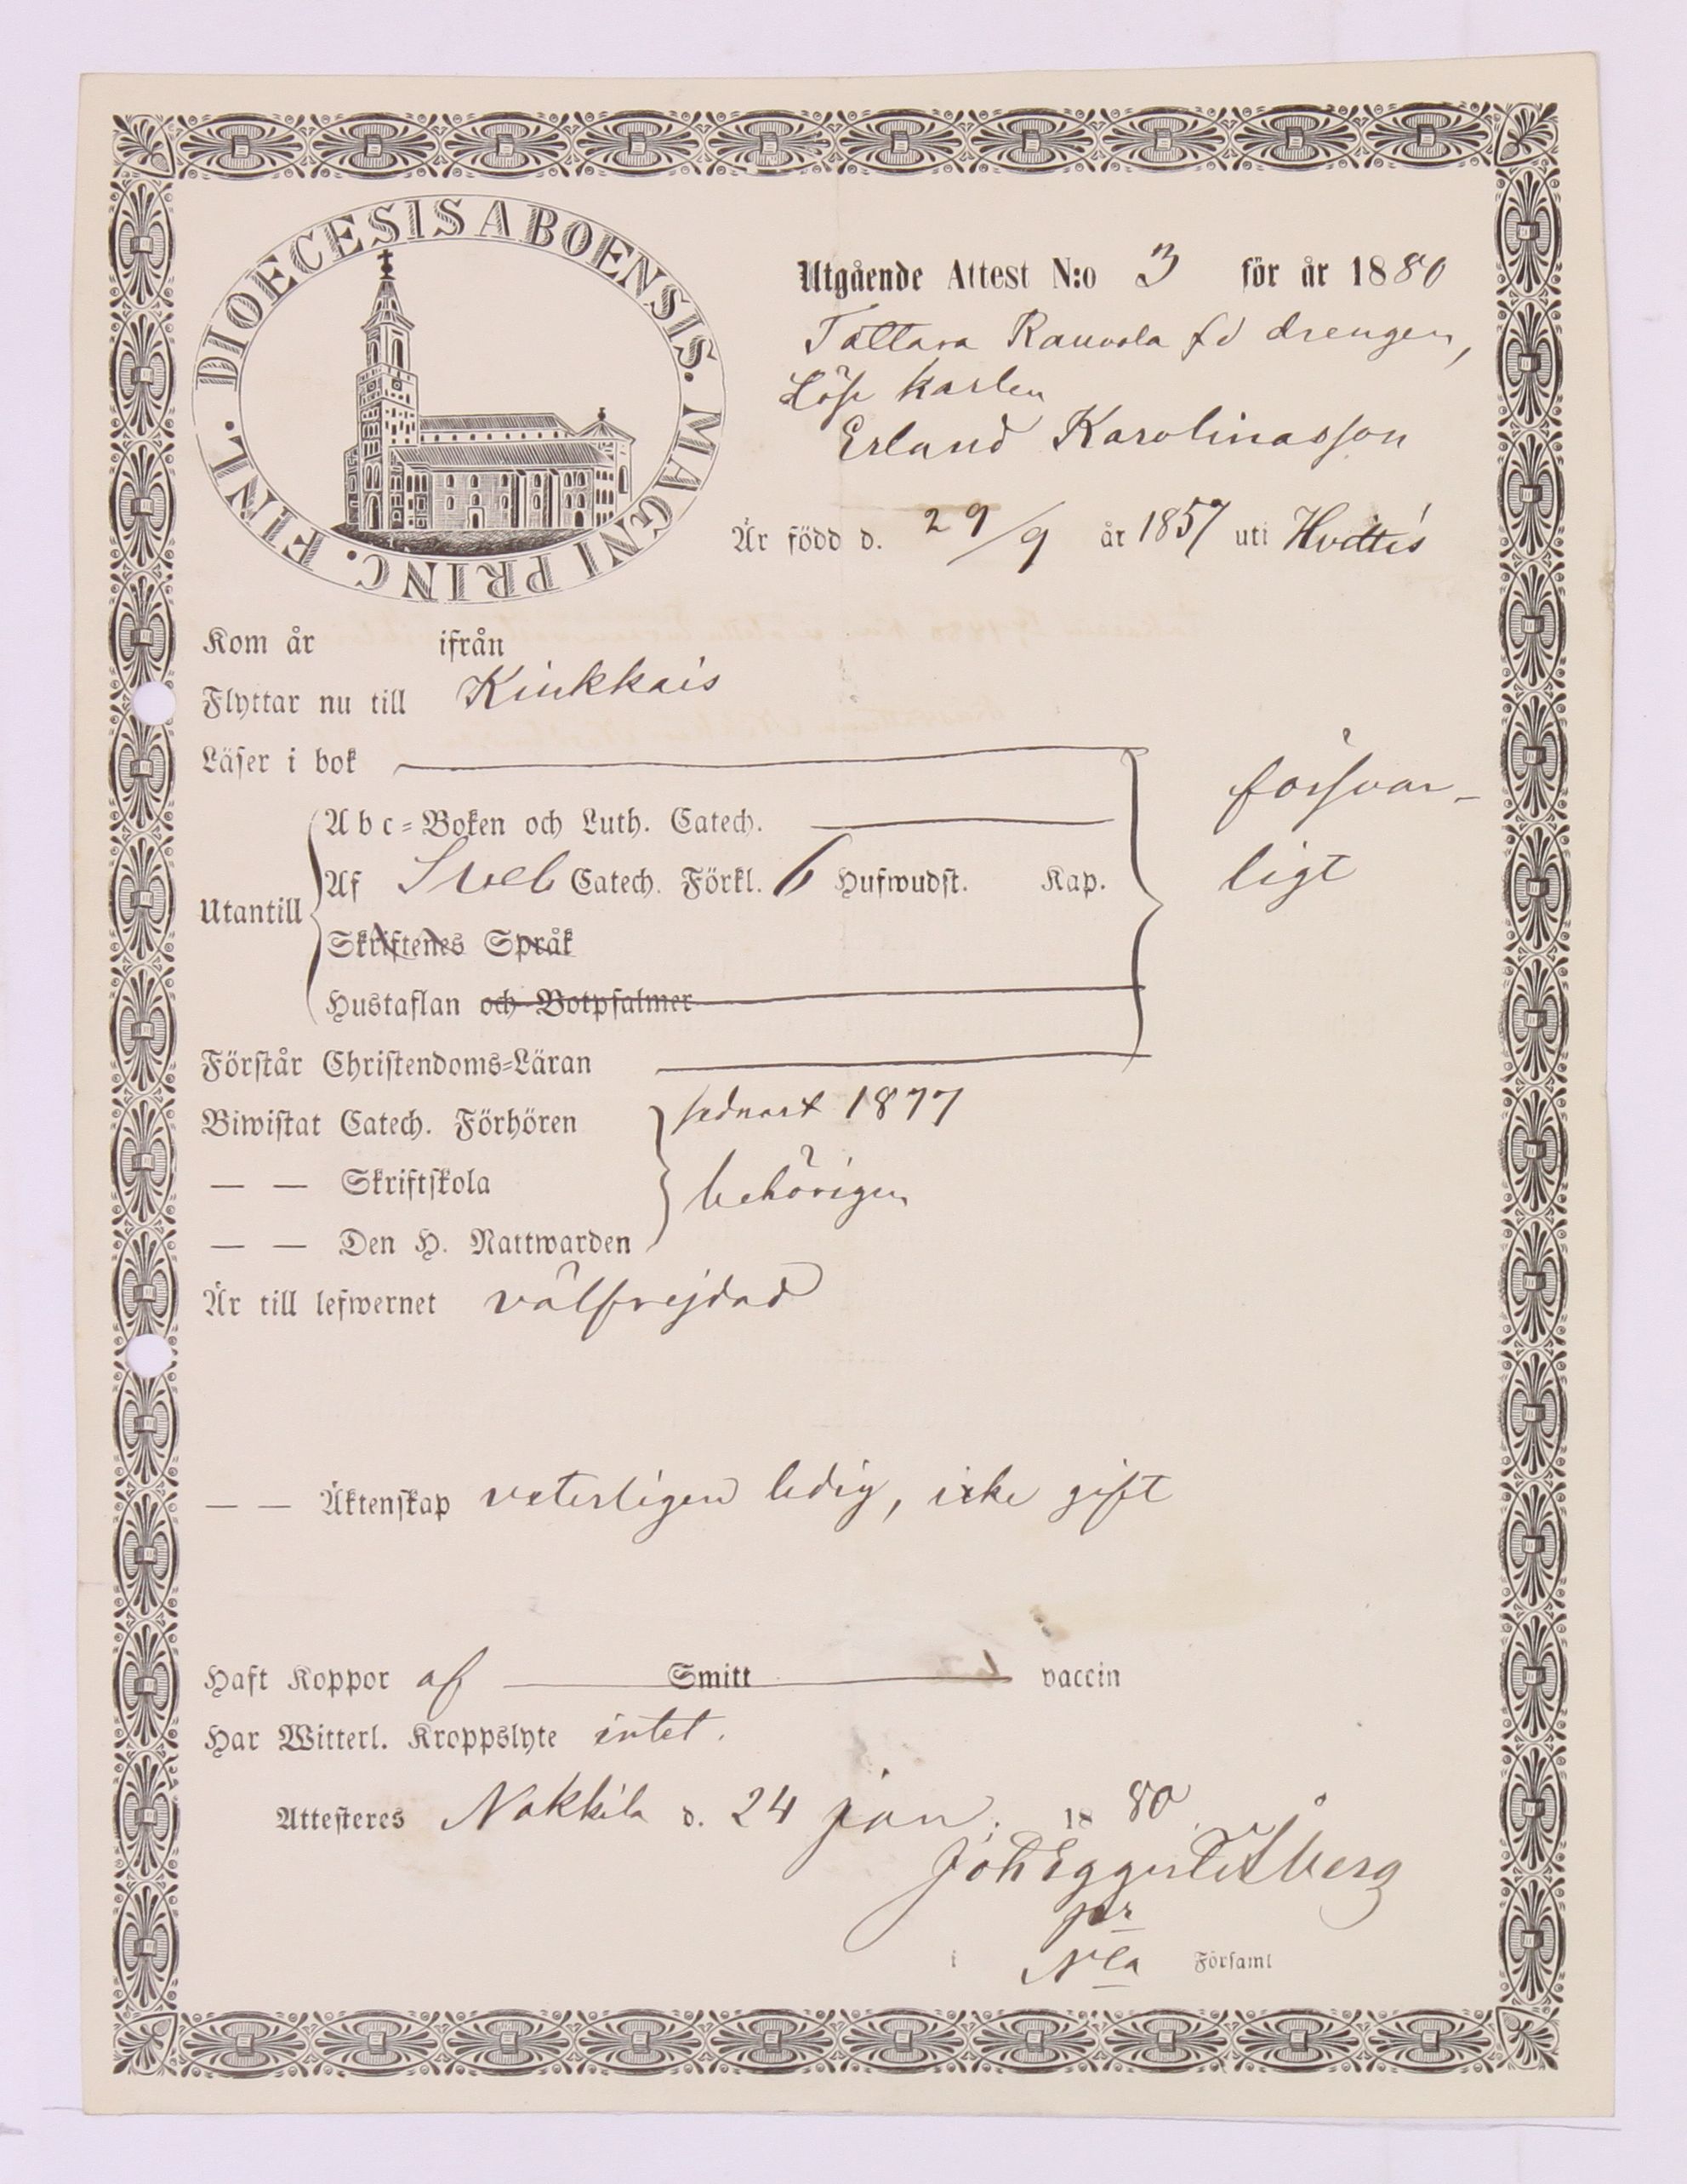 DIOECESIS ABOENSIS. MAGNI PRINC. FINL.
Utgående Attest N:o 3 för år 1880
Tattara Rauvola fd drengen,
Löse karlen
Erland Karolinasson
Är född d. 29/9 år 1857 uti Hvittis
Kom år ifrån
Flyttar nu till Kiukkais
Läser i bok
Abc=Boken och Luth. Catech.
Utantill Af Sveb Catech. Förkl. 6 Hufwudst. Kap.
försvar-
ligt
Skriftenes Språk
Hustaflan och Botpsalmer
Förstår Christendoms=Läran
Biwistat Catech. Förhören sednast 1877
— — Skriftskola behörigen
— — Den H. Nattwarden
Är till lefwernet välfrejdad
— — Äktenskap veterligen ledig, icke gift
Haft Koppor af Smitt vaccin
Har Witterl. Kroppslyte intet.
Attesteres Nakkila d. 24 jan. 1880
Joh
i Nla Församl